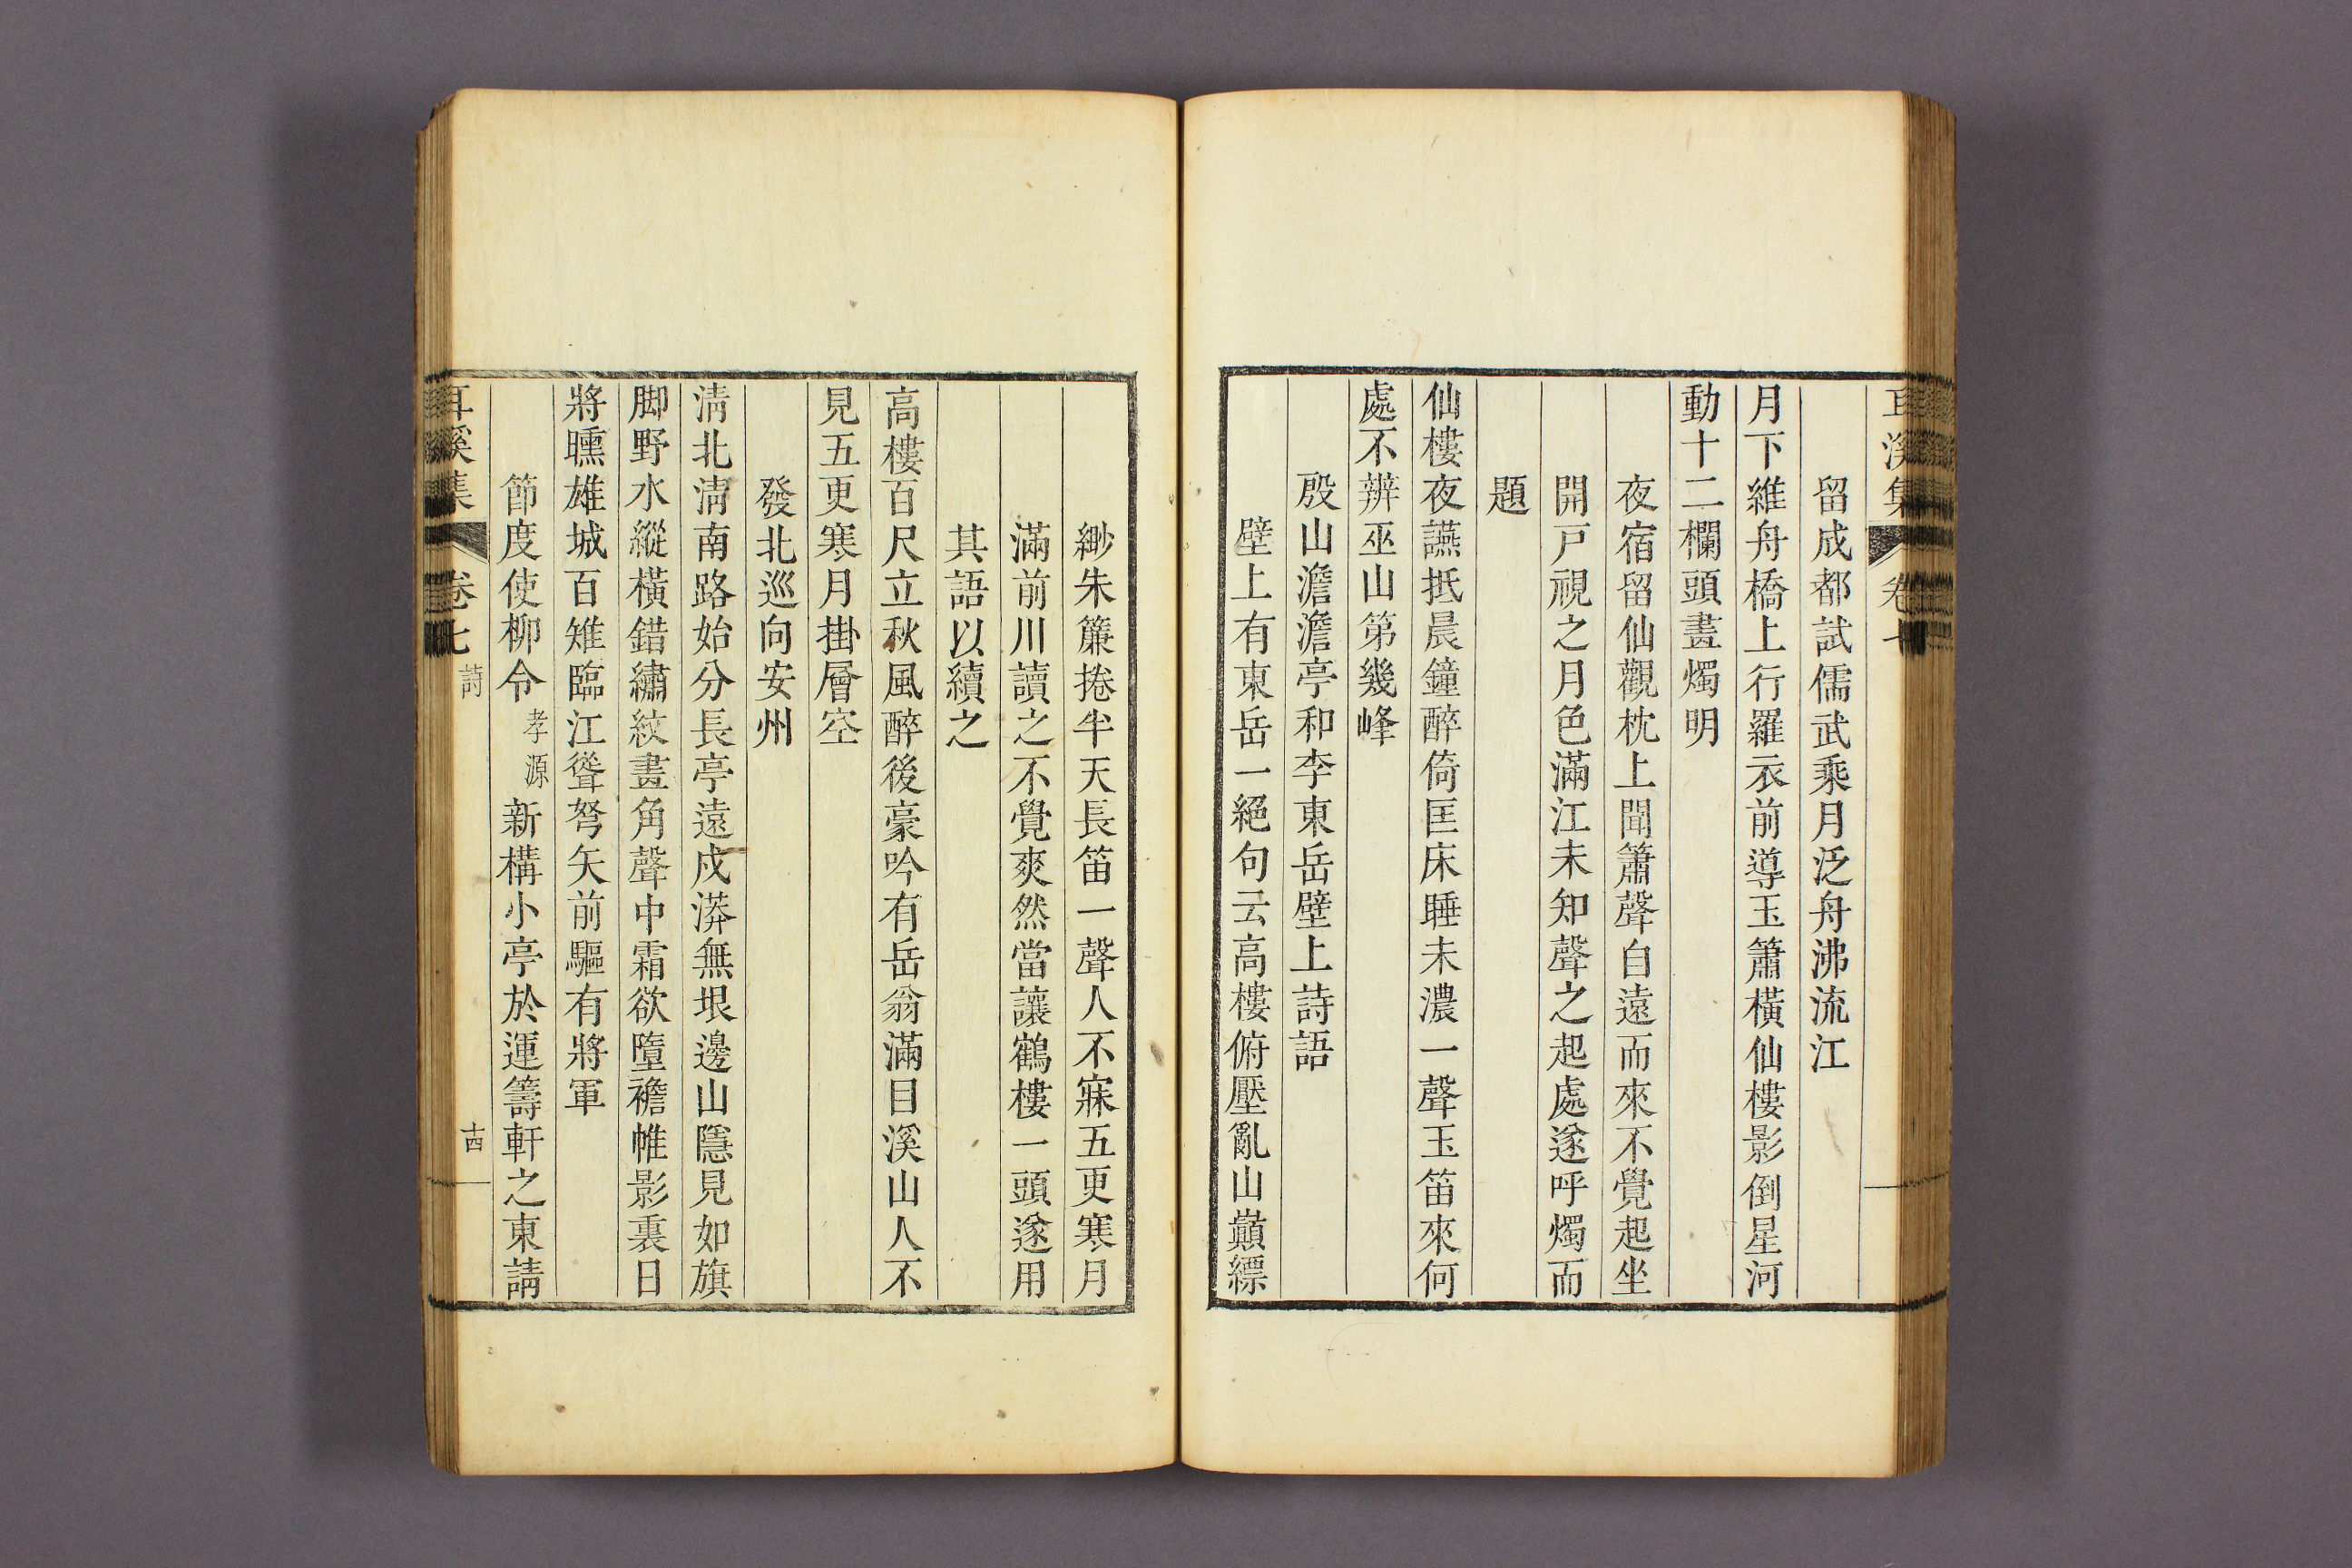 耳溪集 卷七
留成都試儒武乘月泛舟沸流江
月下維舟橋上行羅衣前導玉簫橫仙樓影倒星河
動十二欄頭畫燭明
夜宿留仙觀枕上聞簫聲自遠而來不覺起坐
開戸視之月色滿江未知聲之起處遂呼燭而
題
仙樓夜讌抵晨鐘醉倚匡床睡未濃一聲玉笛來何
處不辨巫山第幾峰
殷山澹澹亭和李東岳壁上詩語
壁上有東岳一絕句云高樓俯壓亂山巔縹
緲朱簾捲半天長笛一聲人不寐五更寒月
滿前川讀之不覺爽然當讓鶴樓一頭遂用
其語以續之
高樓百尺立秋風醉後豪吟有岳翁滿目溪山人不
見五更寒月掛層空
發北巡向安州
淸北淸南路始分長亭遠戍漭無垠邊山隱見如旗
脚野水縱橫錯繡紋畫角聲中霜欲墮襜帷影裏日
將曛雄城百雉臨江聳弩矢前驅有將軍
節度使柳令孝源新構小亭於運籌軒之東請
耳溪集 卷七 詩 十四